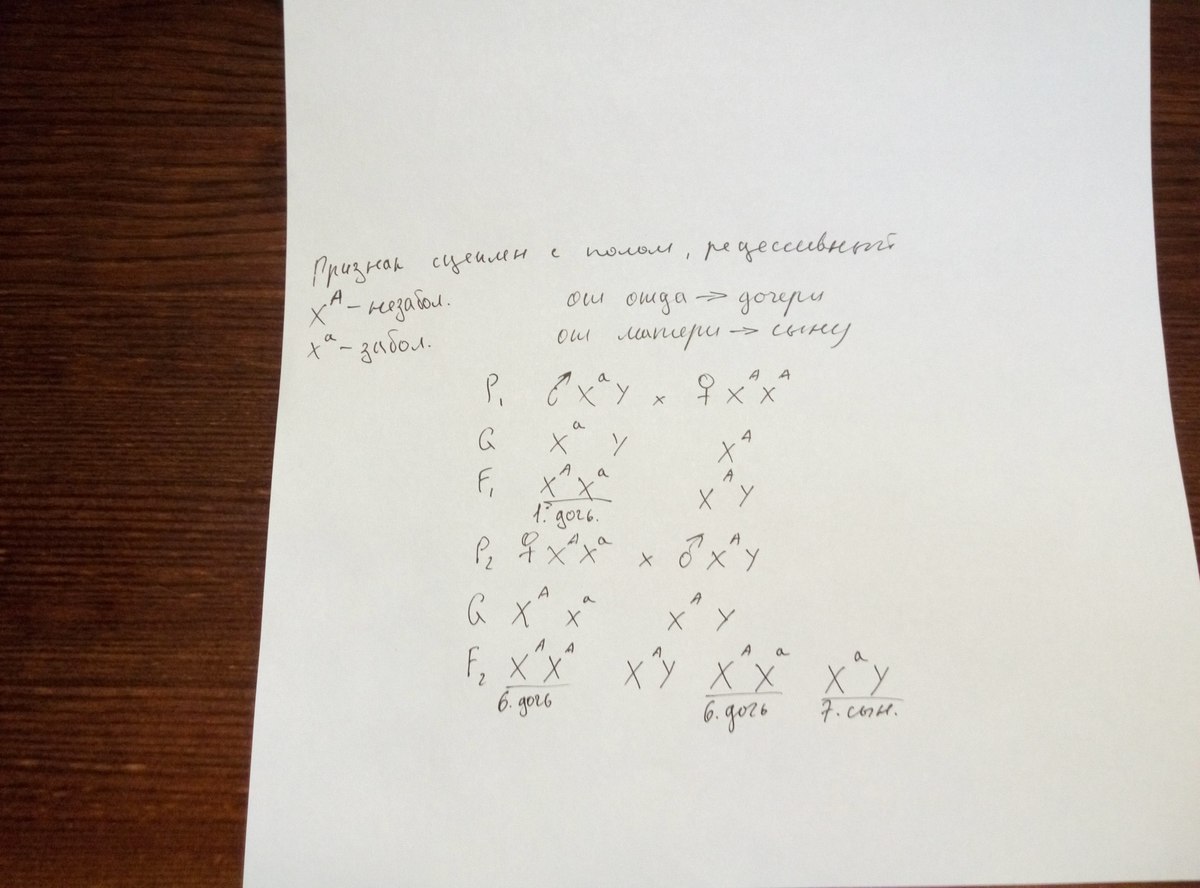 Признак сцеплен с полом, рецессивный
X^A – незабол. от отца → дочери
X^a – забол. от матери → сыну
P₁ ♂ X^a Y × ♀ X^A X^A
G X^a Y X^A
F₁ X^A X^a X^A Y
1. дочь.
P₂ ♀ X^A X^a × ♂ X^A Y
G X^A X^a X^A Y
F₂ X^A X^A X^A Y X^A X^a X^a Y
6. дочь 6. дочь 7. сын.